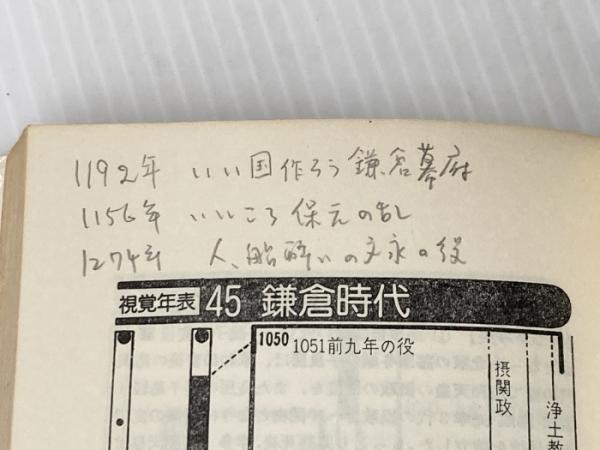 1192年 いい国作ろう鎌倉幕府
1156年 いいころ保元の乱
1274年 人、船酔いの文永の役
視覚年表 45 鎌倉時代
1050 1051前九年の役
摂関政
浄土教